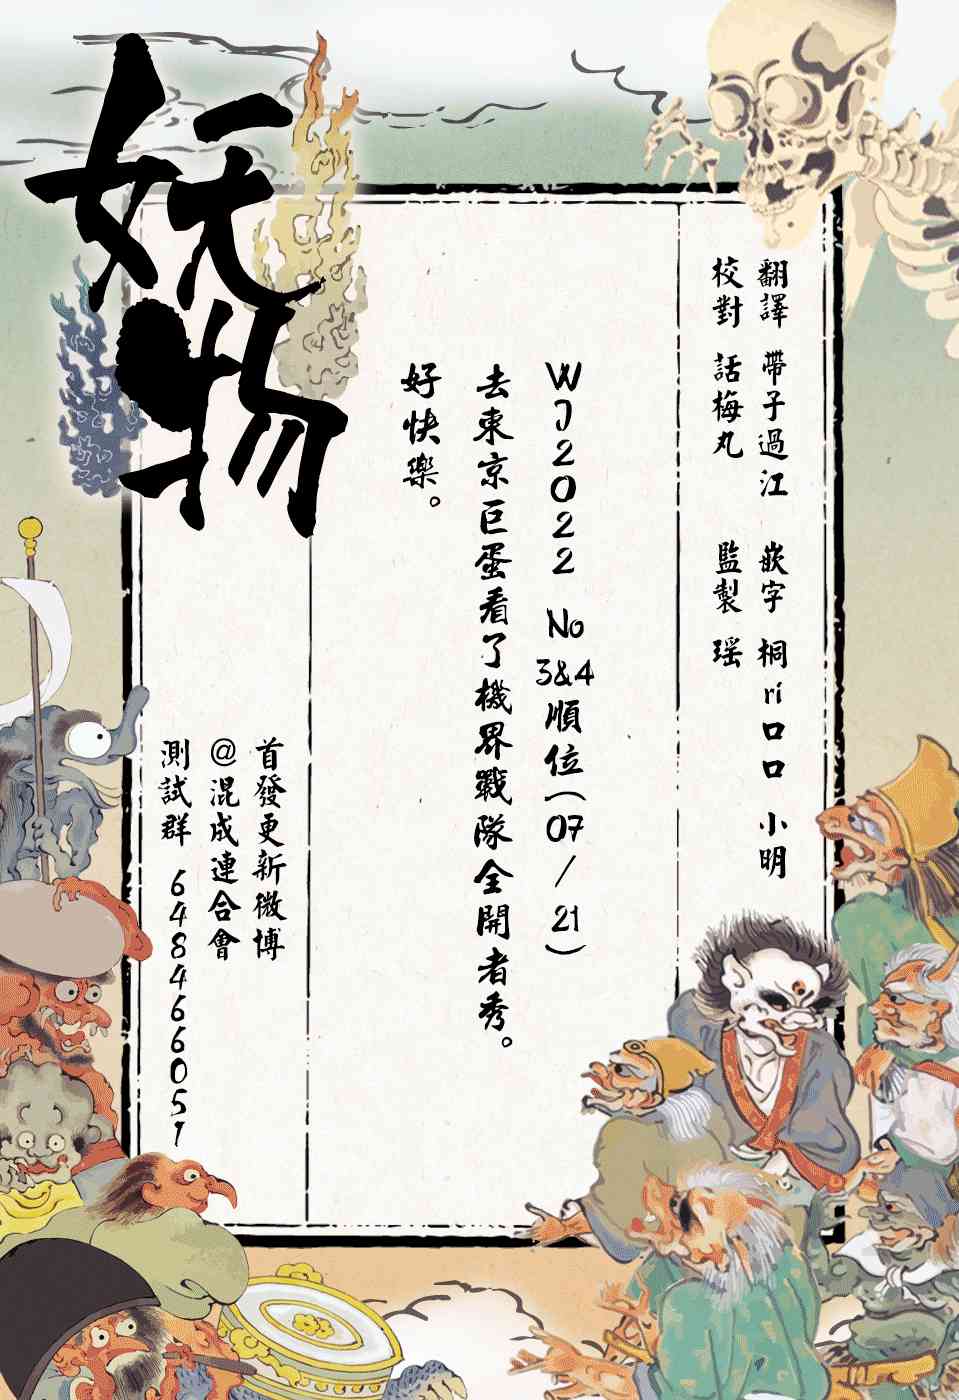 翻譯 帶子過江 嵌字 桐ri口口 小明
校對 話梅丸 監製 瑶
WJ2022 No 3&4順位(07/21)
去東京巨蛋看了機界戰隊全開者秀。
好快樂。
妖物
首發更新微博
@混成連合會
測試群 648466051